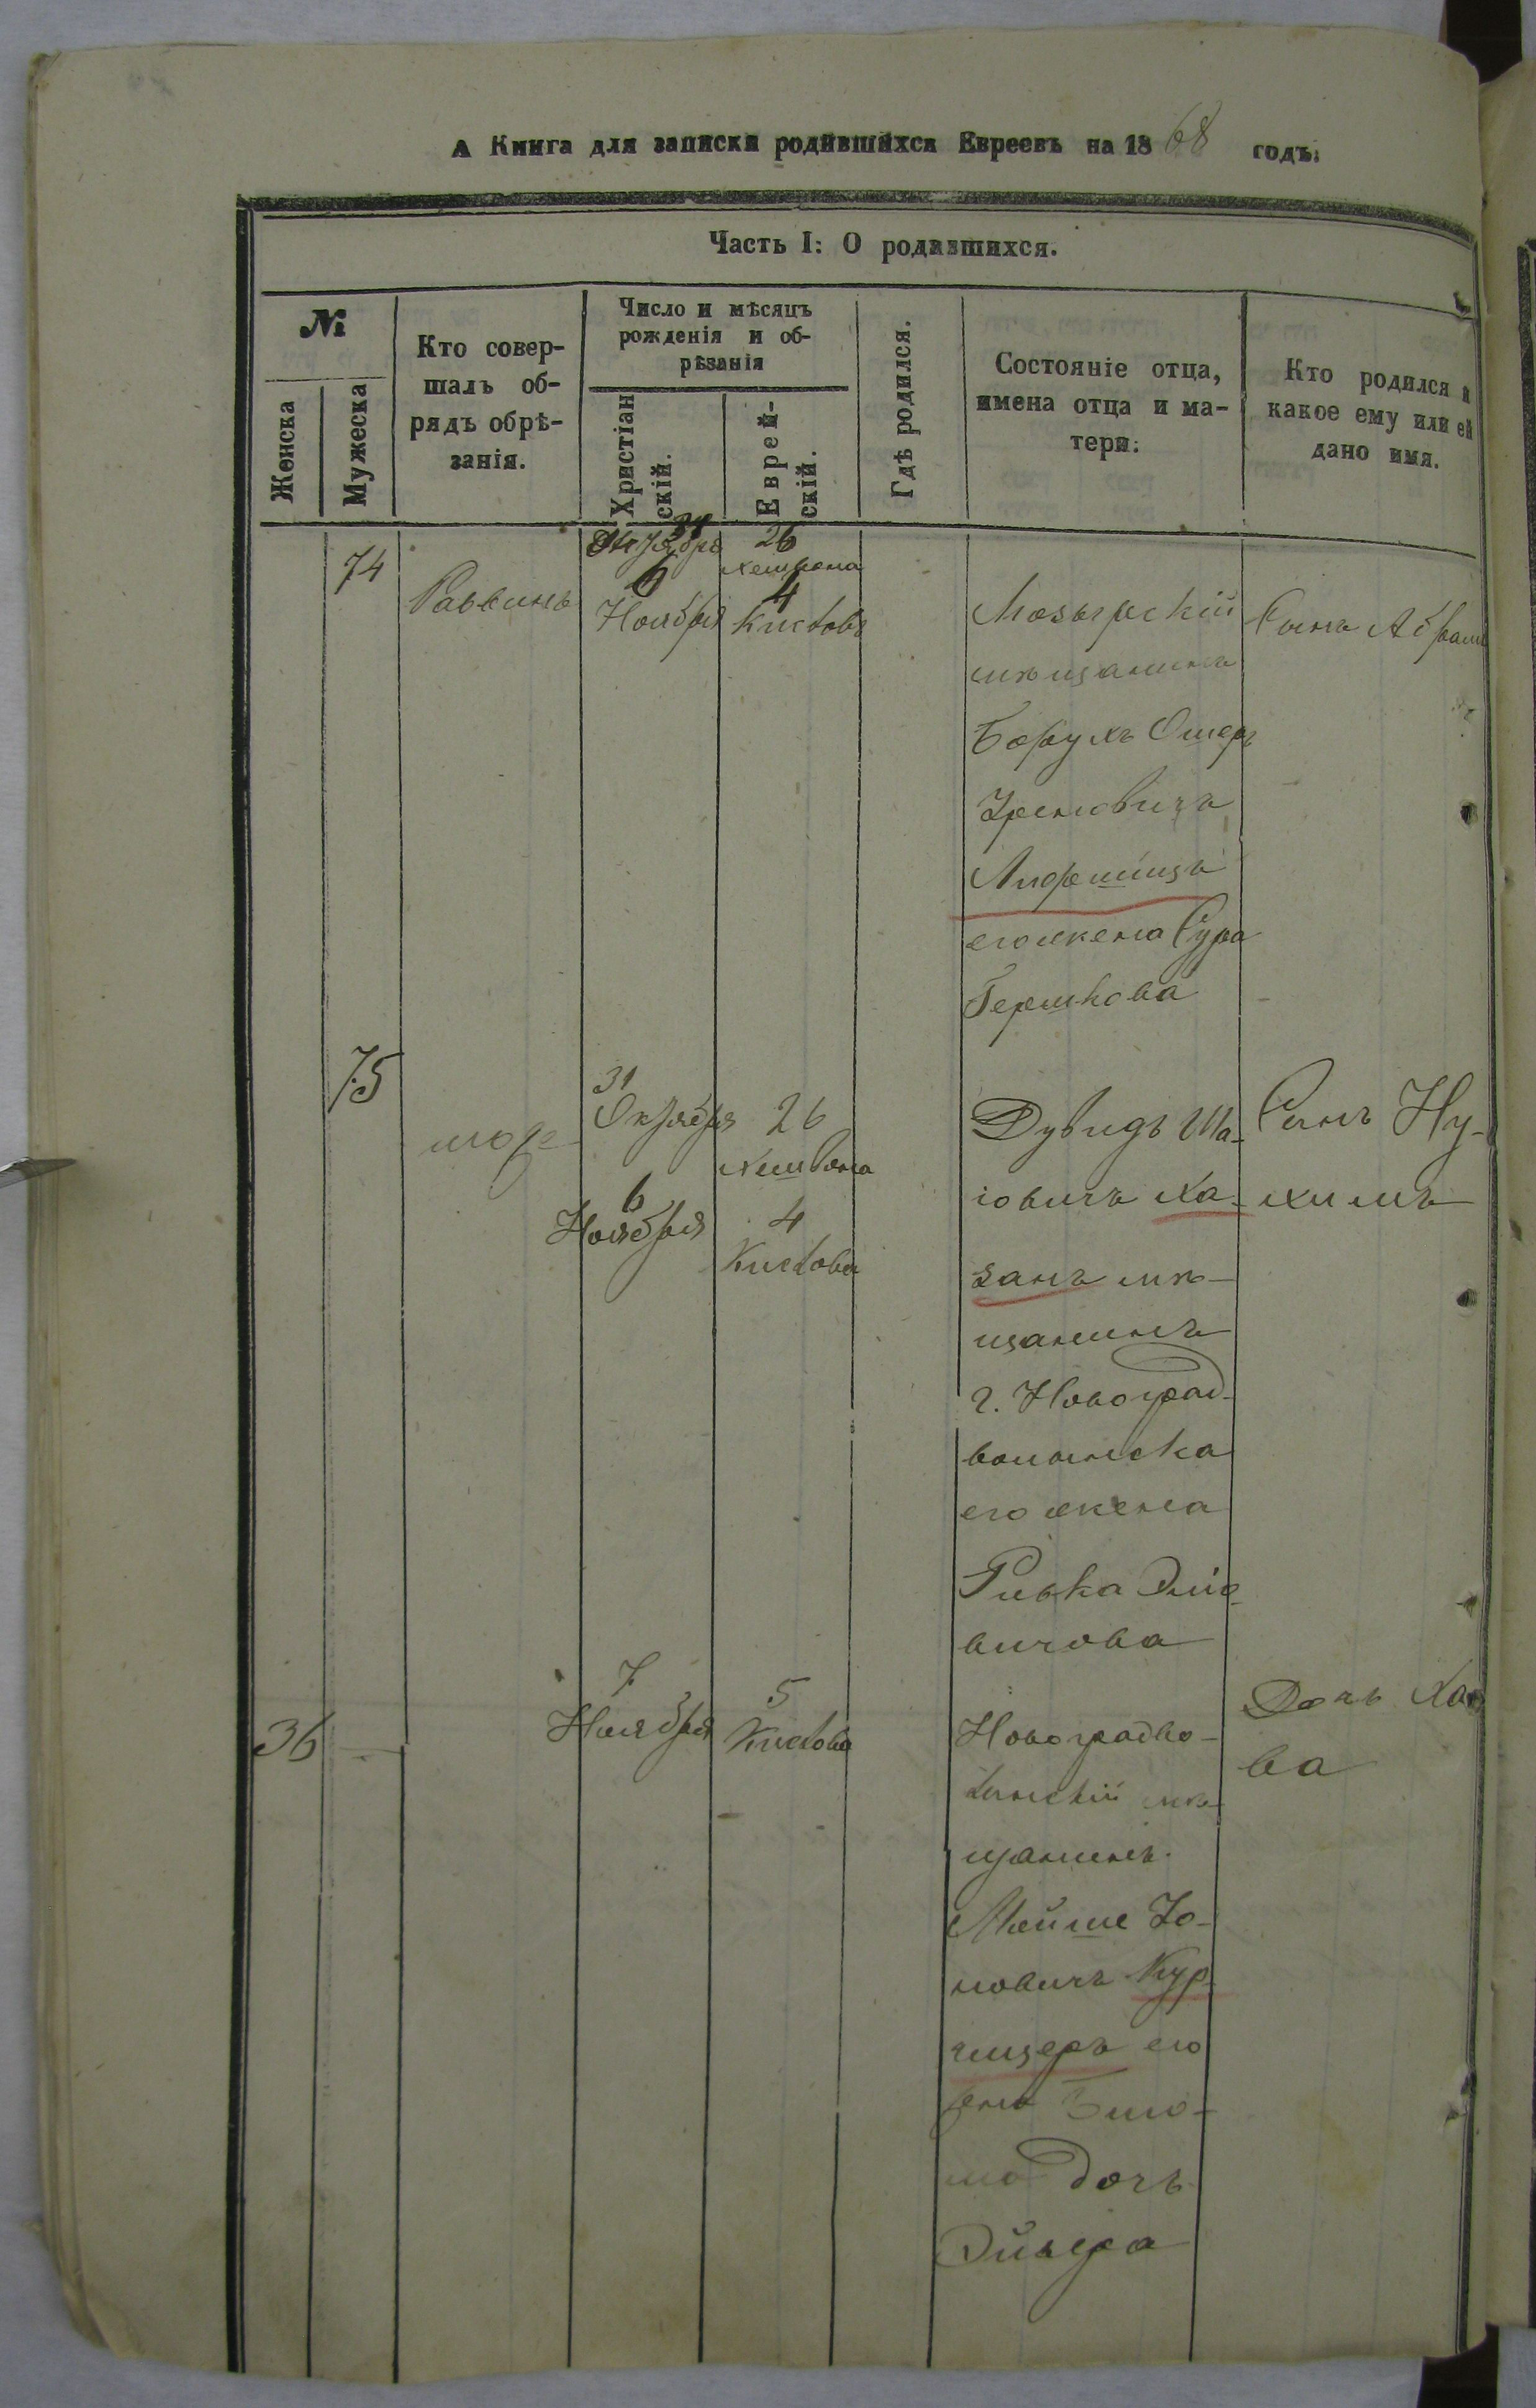 А Книга для записки родившихся Евреевъ на 1868 годъ.
Часть I: О родившихся.
№
Женска
Мужеска
Кто совер-
шалъ об-
рядъ обрѣ-
занія.
Число и мѣсяцъ
рожденія и об-
рѣзанія
Христіан
скій.
Еврей-
скій.
Гдѣ родился.
Состояніе отца,
имена отца и ма-
тери.
Кто родился и
какое ему или ей
дано имя.
74
Раввинъ
31
Октября
6
Ноября
26
хешвона
4
Кислова
Мозырскій
мѣщанинъ
Борухъ Ошеръ
его жена Сура
Гершкова
Сынъ Абрам
75
тоже
31
Октября
6
Ноября
26
Хешвона
4
Кислова
Дувидъ Ша-
іовичъ Ха-
занъ мѣ-
щанинъ
г. Новоград-
волынска
его жена
Ривка Эліо-
вичова
Сынъ Ну-
химъ
36
7
Ноября
5
Кислова
Новоградво-
лынскій мѣ-
щанинъ
Мойше Іо-
новичъ Кур-
его
дочь
Дочь Ха-
ва